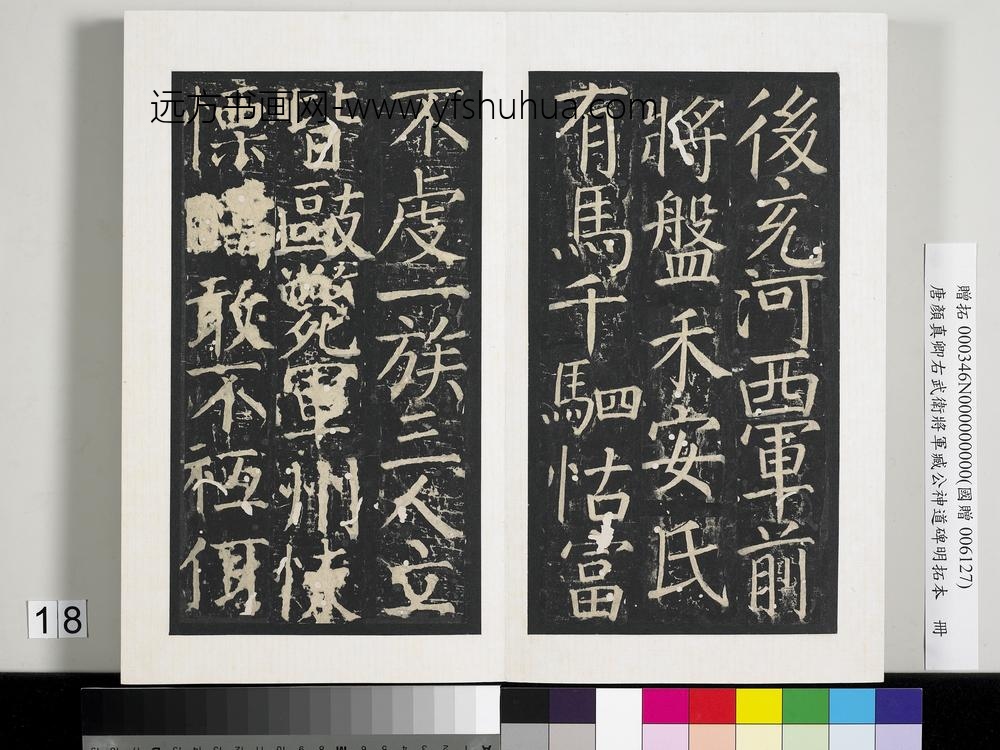 远方书画网-www.yfshuhua.com
後充河西軍前
將盤禾安氏
有馬千駟怙富
不虔一族三人立
皆毆斃軍州悚
慄敢不祗
贈拓 000346N000000000(國贈 006127)
唐顏真卿右武衛將軍臧公神道碑明拓本 冊
18